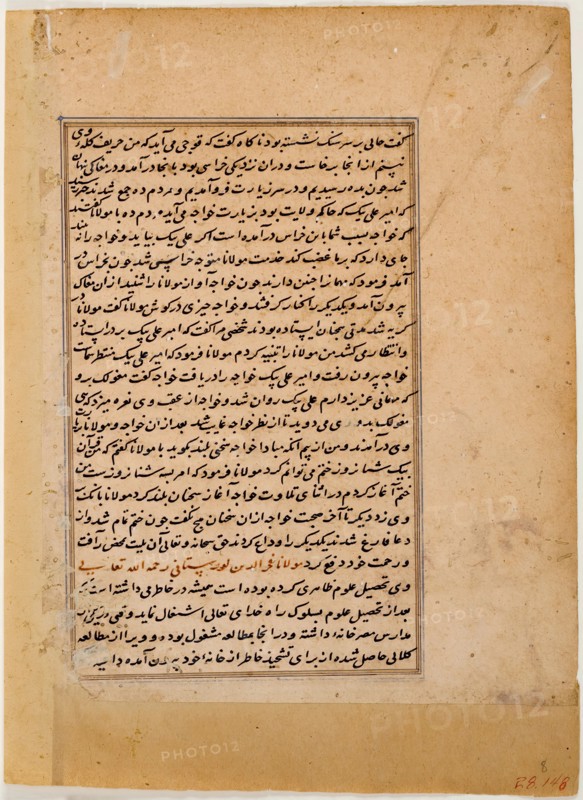 گفت حالی بر سر سنک نشسته بود ناکاه گفت که قوجی می آید که من حریف کله وی
نیستم از انجا برخاست و دران نزدیکی خراسی بود بانجا درآمد و در مغاکی پنهان
شد چون بده رسیدیم و در سر زیارت فروآمدیم و مردم ده جمع شدند
که امیر علی بیک که حاکم ولایت بود بزیارت خواجه می آید مردم ده با مولانا گفتند
که خواجه بسبب شما باین خراس درآمده است اکر علی بیک بیاید و خواجه را نه
جای دارد که بر ما غضب کند خدمت مولانا متوجه خراس شد چون بخراس در
آمد فرمود که مهمانرا چنین دارند چون خواجه آواز مولانا را شنید از ان مغاک
بیرون آمد و یکدیکر را کنار کرفتند و خواجه چیزی در کوش مولانا گفت مولانا در
کریه شد مدتی بسخنان ایستاده بودند شخصی مرا گفت که امیر علی بیک بر در ایستاده
و انتظار می کشد من مولانا را تنبیه کردم مولانا فرمود که امیر علی بیک منتظر شماست
خواجه بیرون رفت و امیر علی بیک خواجه را دریافت خواجه گفت مغولک برو
که مهمانی عزیز دارم علی بیک روان شد و خواجه از عقب وی نعره میزد که ای
مغولک بدو وی می دوید تا از نظر خواجه غایب شد بعد از ان خواجه و مولانا
وی درآمدند و من از بیم آنکه مبادا خواجه سخنی بلند کوید با مولانا گفتم که من قرآن
بیک شبانروز ختم می توانم کرد مولانا فرمود که امر شبانروزست من
ختم آغاز کردم در اثنای تلاوت خواجه آغاز سخنان بلند کرد مولانا بانک بر
وی زد دیکر تا آخر صحبت خواجه ازان سخنان هیچ نکفت چون ختم تمام شد و از
دعا فارغ شدند یکدیکر را وداع کردند حق سبحانه و تعالی آن بلیت بمحض رآفت
و رحمت خود دفع کرد مولانا فخر الدین لورستانی رحمه الله تعالی
وی تحصیل علوم ظاهری کرده بوده است همیشه در خاطر می داشته است که
بعد از تحصیل علوم بسلوک راه خدای تعالی اشتغال نماید وقتی در یکی از
مدارس مصر خانه داشته و در انجا بمطالعه مشغول بوده و ویرا از مطالعه
کلالی حاصل شده از برای تشحیذ خاطر از خانه خود بیرون آمده
PHOTO12
8
28.148